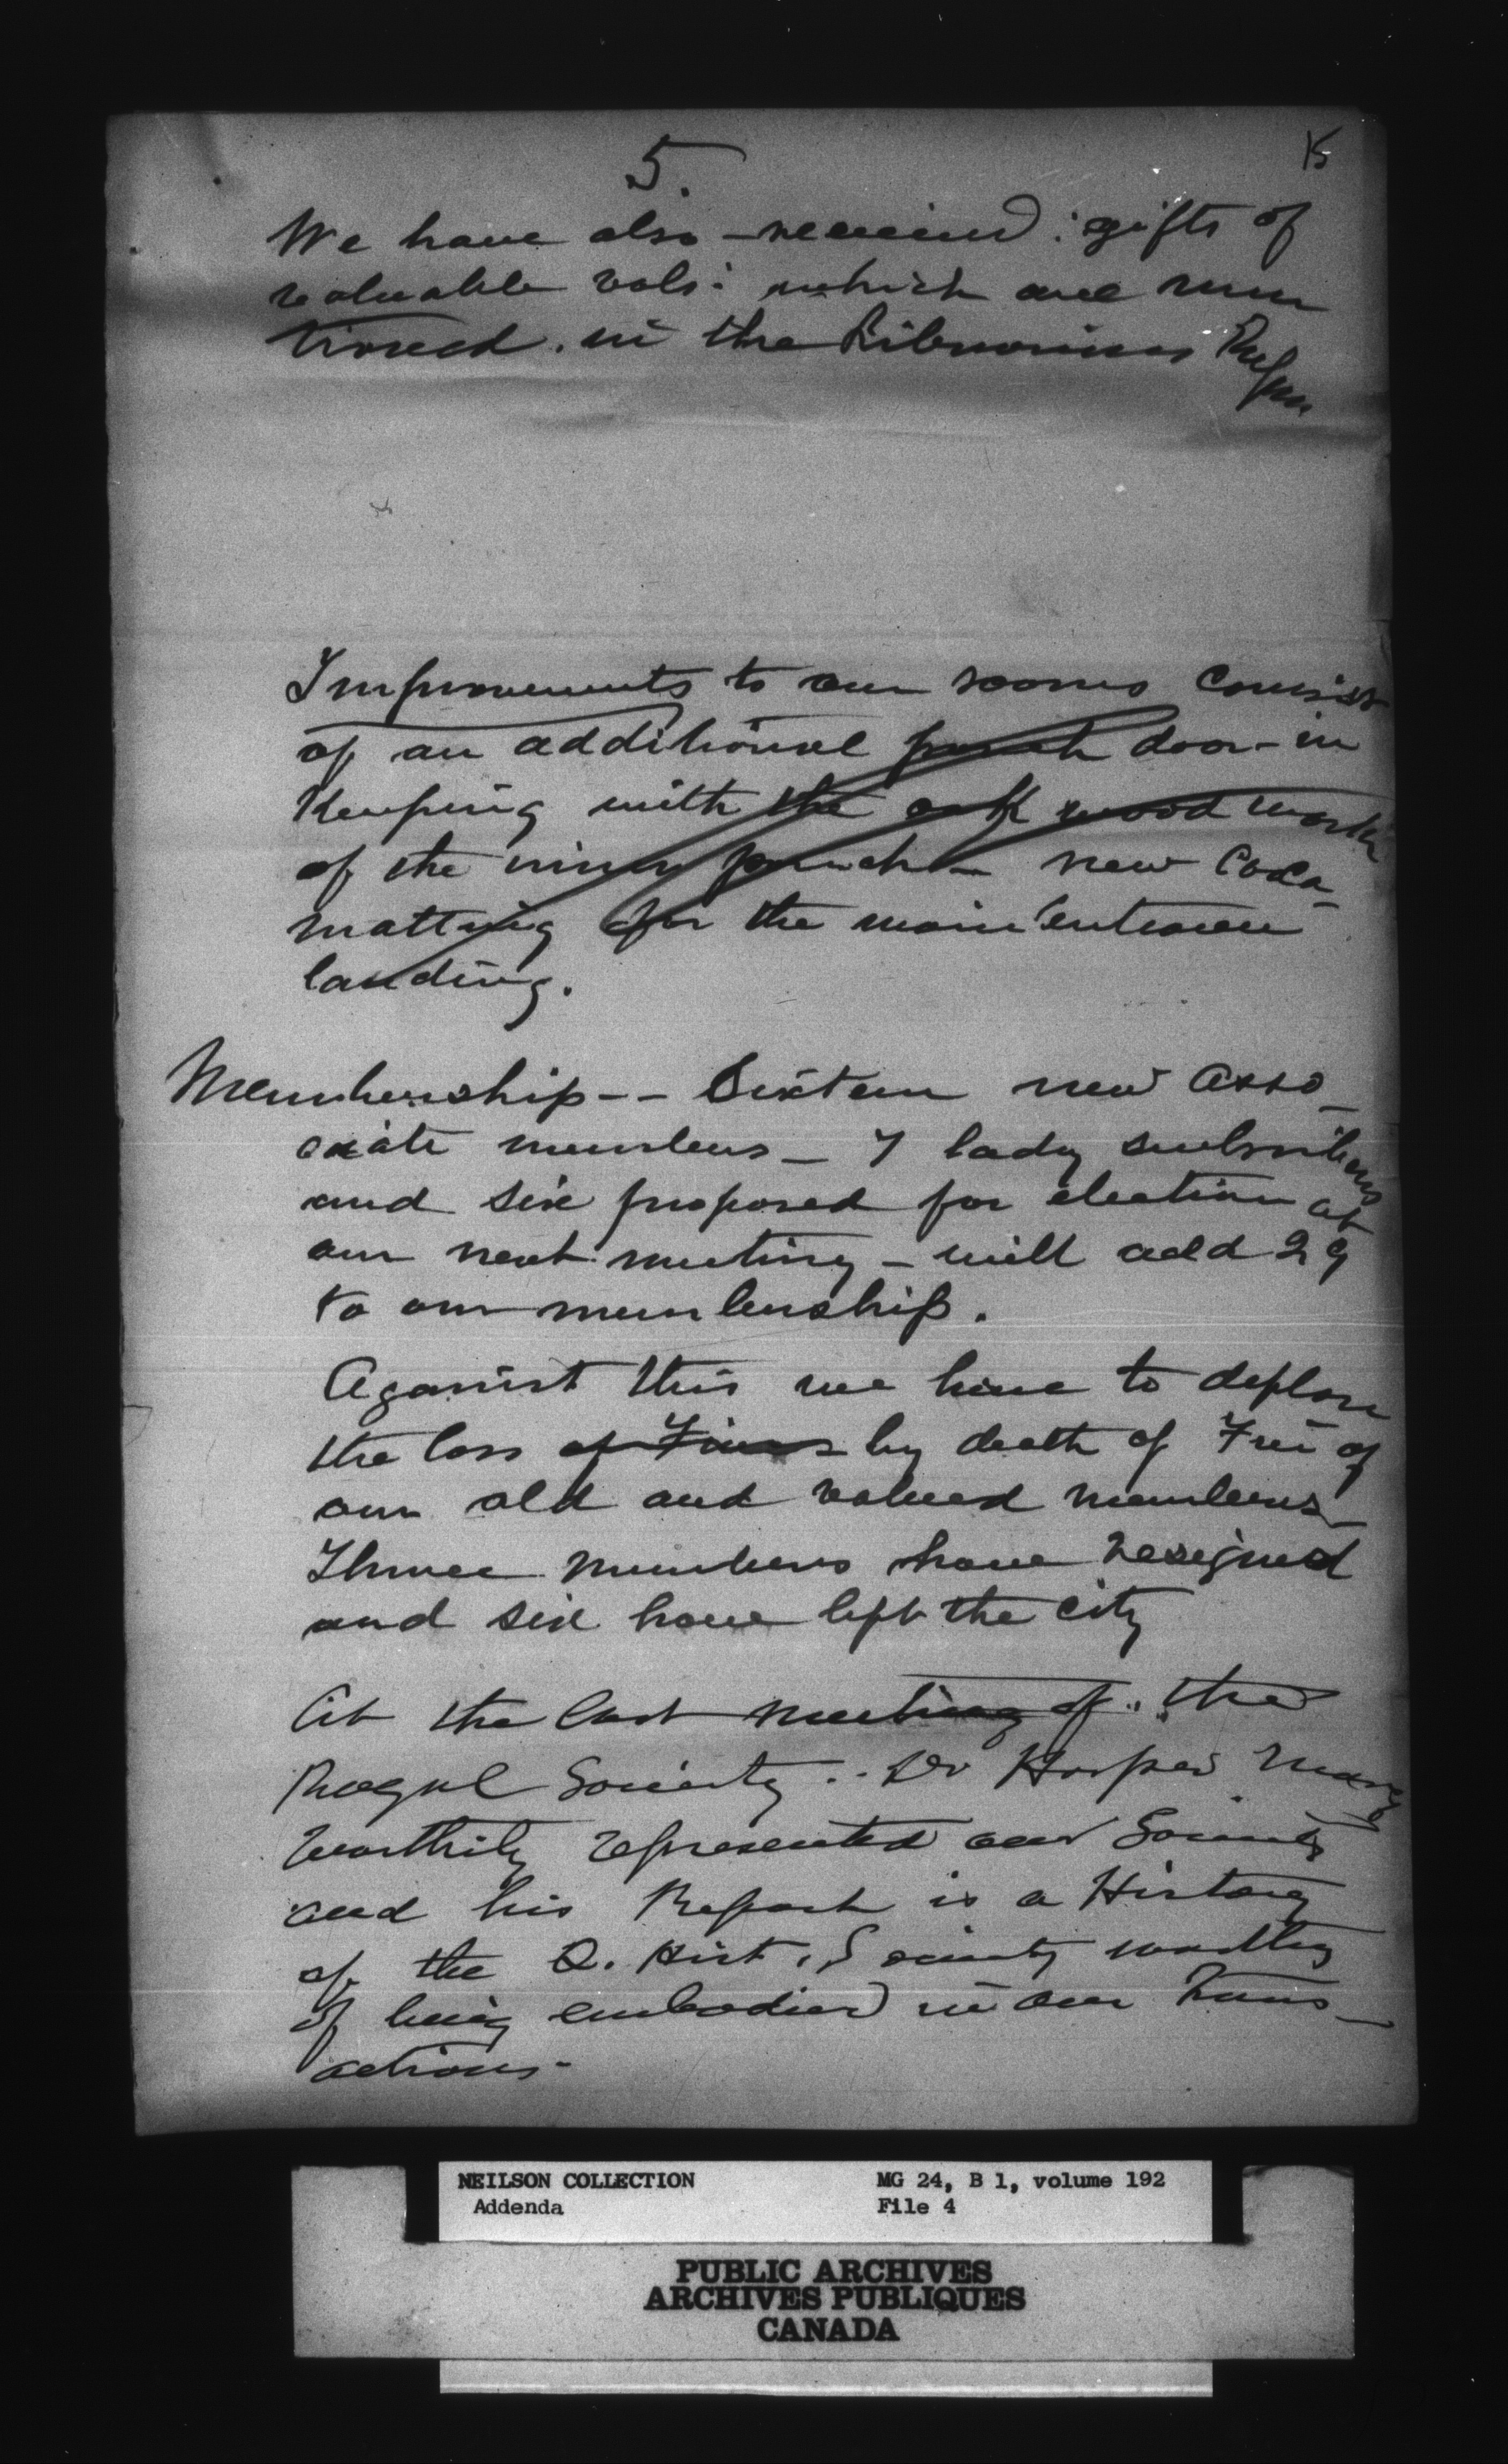 5.
15
We have also received: gifts of
valuable vols: which are men
tioned. in the Librarians Report
Improvements to our rooms consist
of an additional porch door - in
keeping with the oak wood work
of the inner porch - new Coca-
matting for the main entrance
landing.
Membership -- Sixteen new asso-
ciate members - 7 lady subscribers
and six proposed for election at
our next meeting - will add 29
to our membership.
Against this we have to deplore
the loss of Five by death of Five of
our old and valued members -
Three members have resigned
and six have left the city
At the last meeting of the
Royal Society .. Dr Harper most
worthily represented our Society
and his Report is a History
of the Q. Hist. Society worthy
of being embodied in our Trans-
actions -
NEILSON COLLECTION
Addenda
MG 24, B 1, volume 192
File 4
PUBLIC ARCHIVES
ARCHIVES PUBLIQUES
CANADA